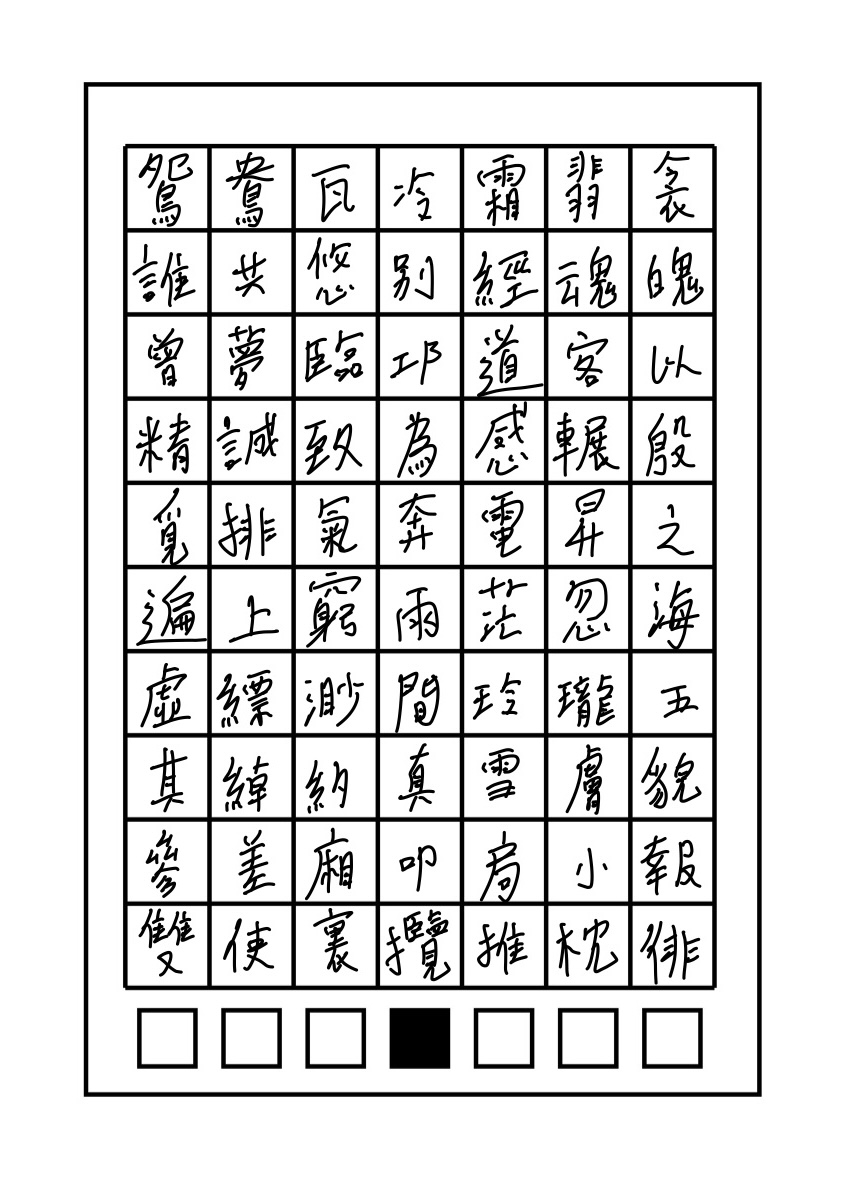 鴛鴦瓦冷霜翡衾
誰共悠別經魂魄
曾夢臨邛道客以
精誠致為感輾殷
覓排氣奔電昇之
遍上窮雨茫忽海
虛縹渺間玲瓏五
其綽約真雪膚貌
參差廂叩扃小報
雙使裏攬推枕徘